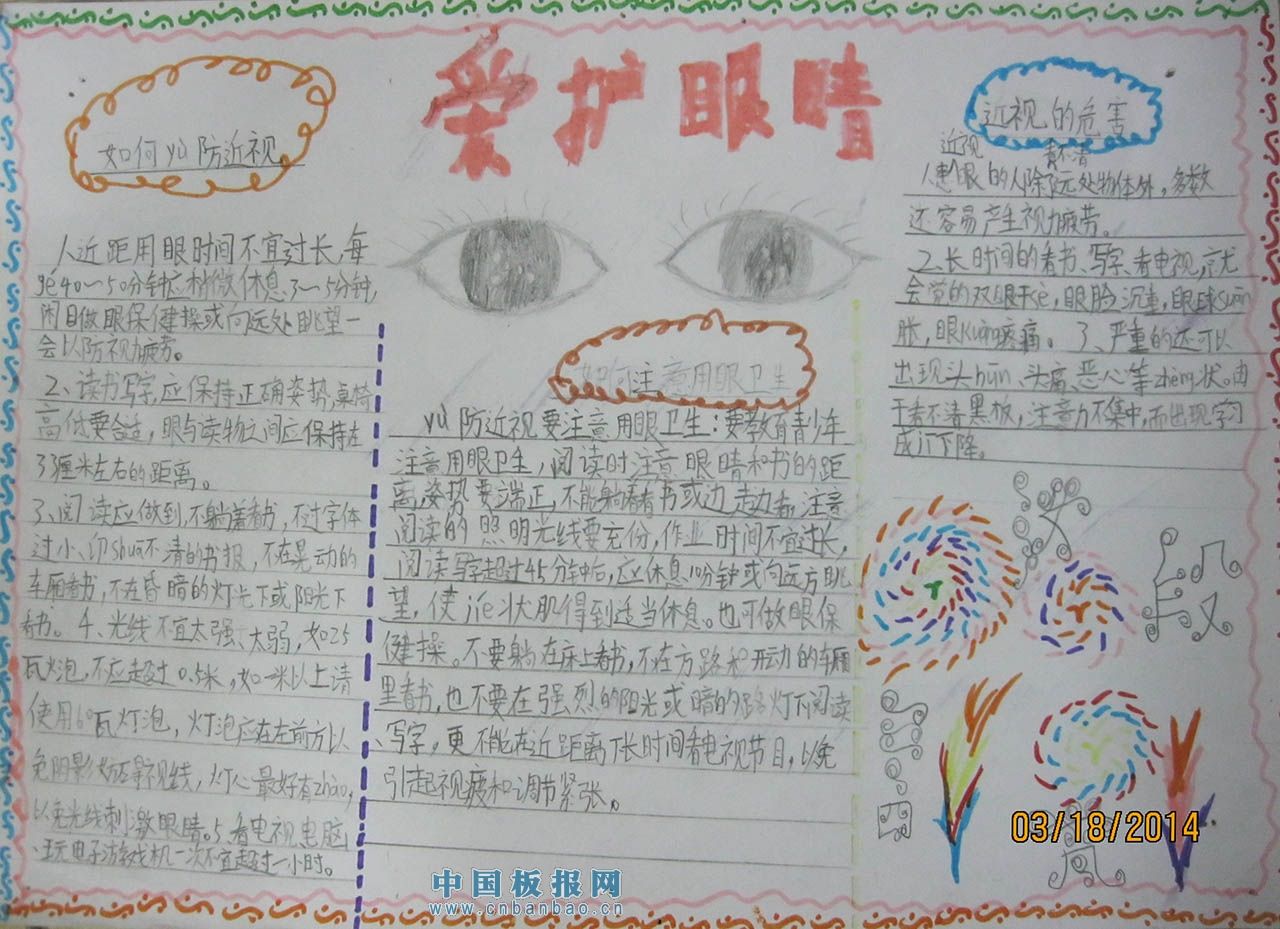 爱护眼睛
如何yù防近视
人近距用眼时间不宜过长,每
gé40~50分钟应稍微休息3~5分钟,
闭目做眼保健操或向远处眺望一
会以防视力疲劳。
2、读书写字,应保持正确姿势,桌椅
高低要合适,眼与读物之间应保持在
33厘米左右的距离。
3、阅读应做到,不躺着看书,不过字体
过小、印shuā不清的书报,不在晃动的
车厢看书,不在昏暗的灯光下或阳光下
看书。4、光线不宜太强太弱,如25
瓦火泡,不应超过0.5米,如一米以上请
使用60瓦灯泡,灯泡应在左前方以
免阴影妨碍视线,灯心最好有zhào,
以免光线刺激眼睛。5、看电视电脑
、玩电子游戏机一次不宜超过一小时。
如何注意用眼卫生
yù防近视要注意用眼卫生:要教育青少年
注意用眼卫生,阅读时注意眼睛和书的距
离,姿势要端正,不能躺着看书或边走边看,注意
阅读的照明光线要充份,作业时间不宜过长,
阅读写字超过45分钟后,应休息10分钟或向远方眺
望,使jié状肌得到适当休息。也可做眼保
健操。不要躺在床上看书,不在方路和开动的车厢
里看书,也不要在强烈的阳光或暗的路灯下阅读
、写字,更不能在近距离下长时间看电视节目,以免
引起视疲和调节紧张。
近视的危害
近视 看不清
1、患眼的人除阮处物体外,多数
还容易产生视力疲劳。
2、长时间的看书、写字、看电视,就
会觉的双眼干sè,眼脸沉重,眼球suān
胀,眼kuàng疼痛。3、严重的还可以
出现头hūn、头痛、恶心等zhèng状。由
于看不清黑板,注意力不集中,而出现学习
成计下降。
03/18/2014
中国板报网
www.cnbanbao.cn